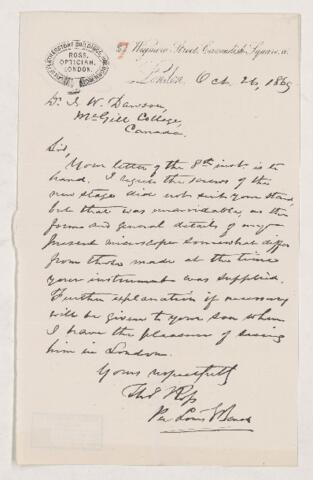 FEATHERSTONE BUILDINGS
ROSS,
OPTICIAN,
LONDON.
53 Wigmore Street, Cavendish Square, W.
London, Oct. 26, 1869
Dr. J. W. Dawson,
McGill College,
Canada.
Sir,
Your letter of the 8th inst. is to
hand. I regret the screws of the
new stage did not suit your stand,
but that was unavoidable, as the
forms and general details of my
present microscopes somewhat differ
from those made at the time
your instrument was supplied.
Further explanation if necessary
will be given to your son when
I have the pleasure of seeing
him in London.
Yours respectfully
Thos Ross
Per Louis